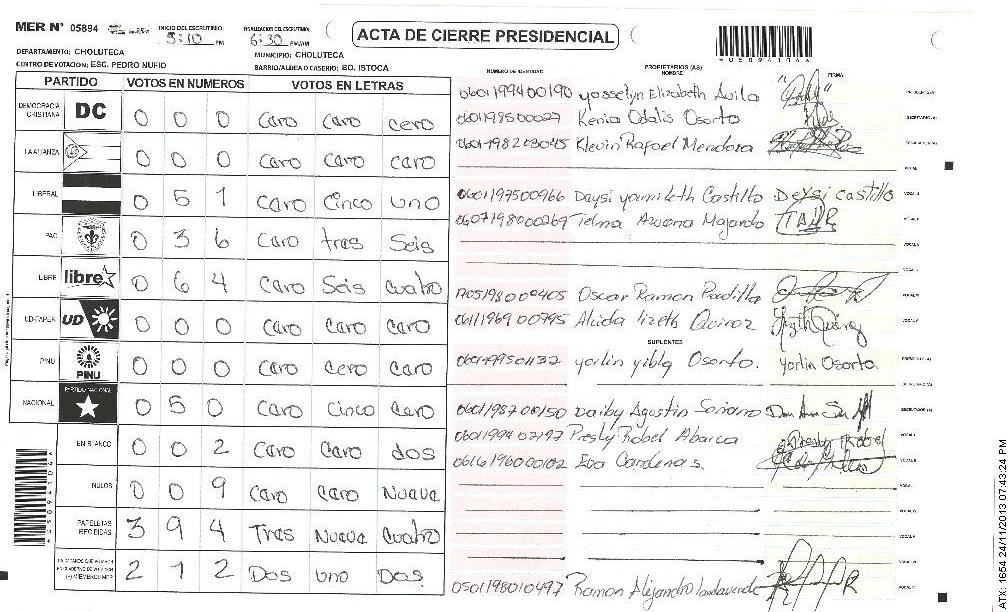 MER N° 05894 INICIO DEL ESCRUTINIO: 5:10 PM FINALIZACION DEL ESCRUTINIO: 6:30 PM/AM
ACTA DE CIERRE PRESIDENCIAL
DEPARTAMENTO: CHOLUTECA MUNICIPIO: CHOLUTECA
CENTRO DE VOTACION: ESC. PEDRO NUFIO BARRIO/ALDEA O CASERIO: BO. ISTOCA
PARTIDO VOTOS EN NUMEROS VOTOS EN LETRAS
DEMOCRACIA CRISTIANA DC 0 0 0 Caro Caro cero
LA ALIANZA 0 0 0 Caro Caro caro
LIBERAL 0 5 1 Caro Cinco uno
PAC 0 3 6 Caro tras Seis
LIBRE libre 0 6 4 Caro Seis Cuatro
UD-FAPER UD 0 0 0 Caro Caro Caro
PINU PINU 0 0 0 Caro Cero Caro
NACIONAL PARTIDO NACIONAL 0 5 0 Caro Cinco Caro
EN BLANCO 0 0 2 Caro Caro dos
NULOS 0 0 9 Caro Caro Nuava
PAPELETAS RECIBIDAS 3 9 4 Tras Nuava Cuatro
2 1 2 Dos uno Dos
NUMERO DE IDENTIDAD PROPIETARIOS (AS) NOMBRE FIRMA
0601199400190 yosselyn Elizabeth Avila PRESIDENTE(A)
0601198500027 Kenia Odalis Osorto SECRETARIO(A)
0601198203045 Klevin Rafael Mendoza ESCRUTADOR(A)
VOCAL I
0601197500966 Daysi yamileth Castillo Deysi castillo
0607198000269 Telma Azucena Majardo
1705198000405 Oscar Ramon Padilla
0611196900795 Alcida lizeth Quiroz
SUPLENTES
0601199501132 yorlin yibly Osorto. Yorlin Osorto.
0601198700150 Daiby Agustin Soriano
0601199402197 Presby Robel Abarca Presby Robel
0616196000102 Eva Cardenas.
0501198010497 Ramon Alejandro landaverde
*05894104*
ATX: 1654 24/11/2013 07:43:24 PM